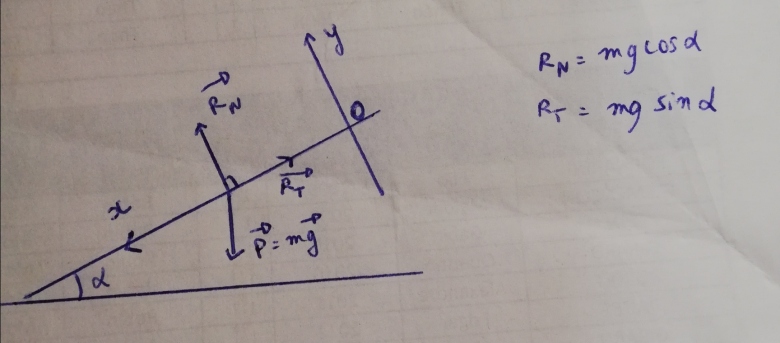 y
R⃗N
O
R⃗T
x
P⃗ = mg⃗
α
RN = mg cos α
RT = mg sin α